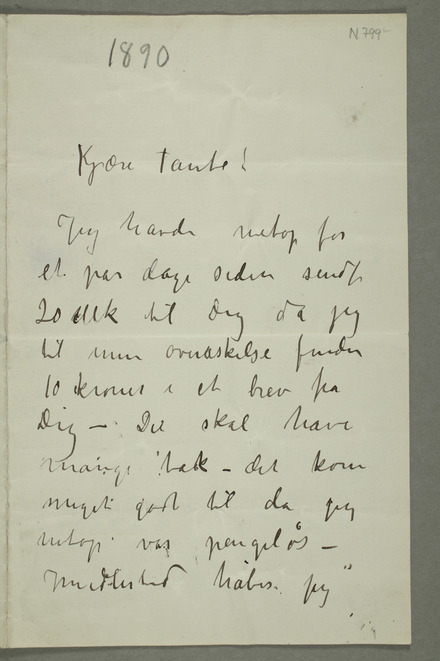 N 799
1890
Kjære tante!
Jeg havde netop for
et par dage siden sendt
20 Mk til Dig da jeg
til min overaskelse finder
10 kroner i et brev fra
Dig – Du skal have
mange tak – det kom
meget godt til da jeg
netop var pengeløs –
Imidlertid håber jeg